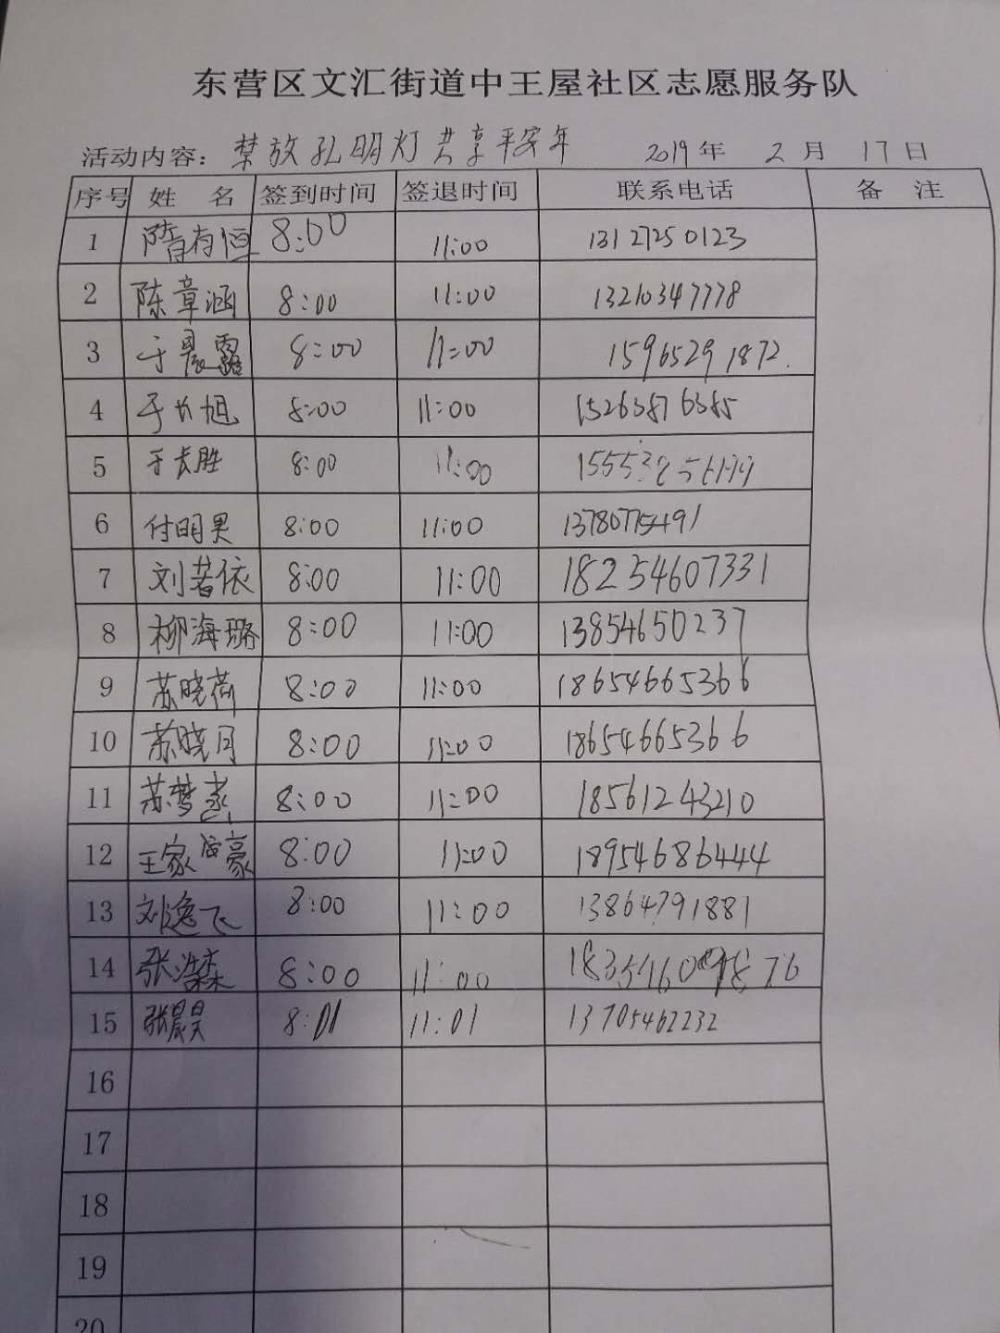 东营区文汇街道中王屋社区志愿服务队
活动内容：禁放孔明灯共享平安年 2019年 2月 17日
序号 姓 名 签到时间 签退时间 联系电话 备 注
1 隋有恒 8:00 11:00 13127250123
2 陈章涵 8:00 11:00 13210347778
3 于晨露 8:00 11:00 15965291872.
4 8:00 11:00 15263876385
5 于长胜 8:00 11:00
6 付明果 8:00 11:00 13780775491
7 刘若依 8:00 11:00 18254607331
8 柳海璐 8:00 11:00 13854650237
9 苏晓荷 8:00 11:00 18654665366
10 苏晓月 8:00 11:00 18654665366
11 苏梦 8:00 11:00 18561243210
12 王家 豪 8:00 11:00 18954686444
13 刘逸飞 8:00 11:00 13864791881
14 张浩森 8:00 11:00
15 张晨昊 8:01 11:01 13705462232
16
17
18
19
20